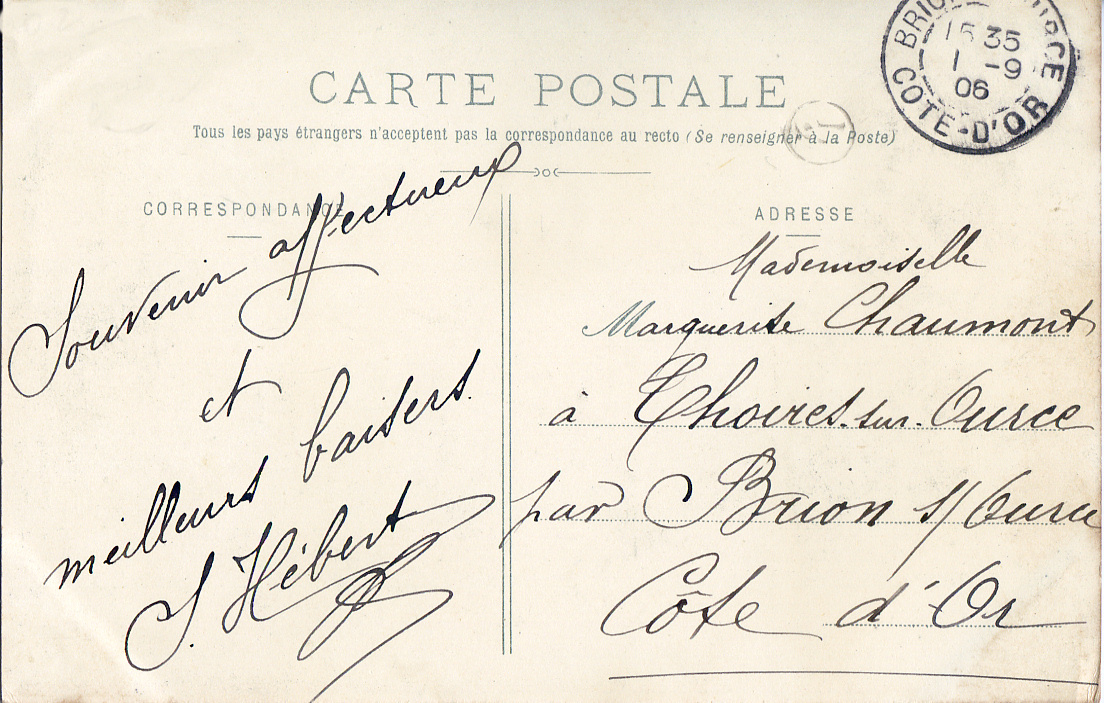 CARTE POSTALE
Tous les pays étrangers n'acceptent pas la correspondance au recto (Se renseigner à la Poste)
CORRESPONDANCE
Souvenir affectueux
et
meilleurs baisers.
S. Hébert
ADRESSE
Mademoiselle
Marguerite Chaumont
à Thoires-sur-Ource
par Brion s/Ource
Côte d'Or
15 35
1 -9
06
COTE-D'OR